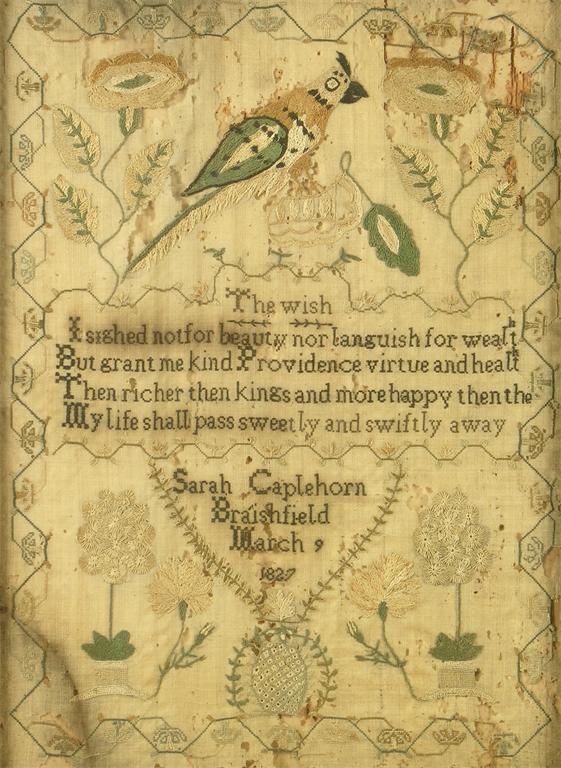 The wish
I sighed not for beauty nor languish for wealth
But grant me kind Providence virtue and healt
Then richer then kings and more happy then the
My life shall pass sweetly and swiftly away
Sarah Caplehorn
Braishfield
March 9
1827